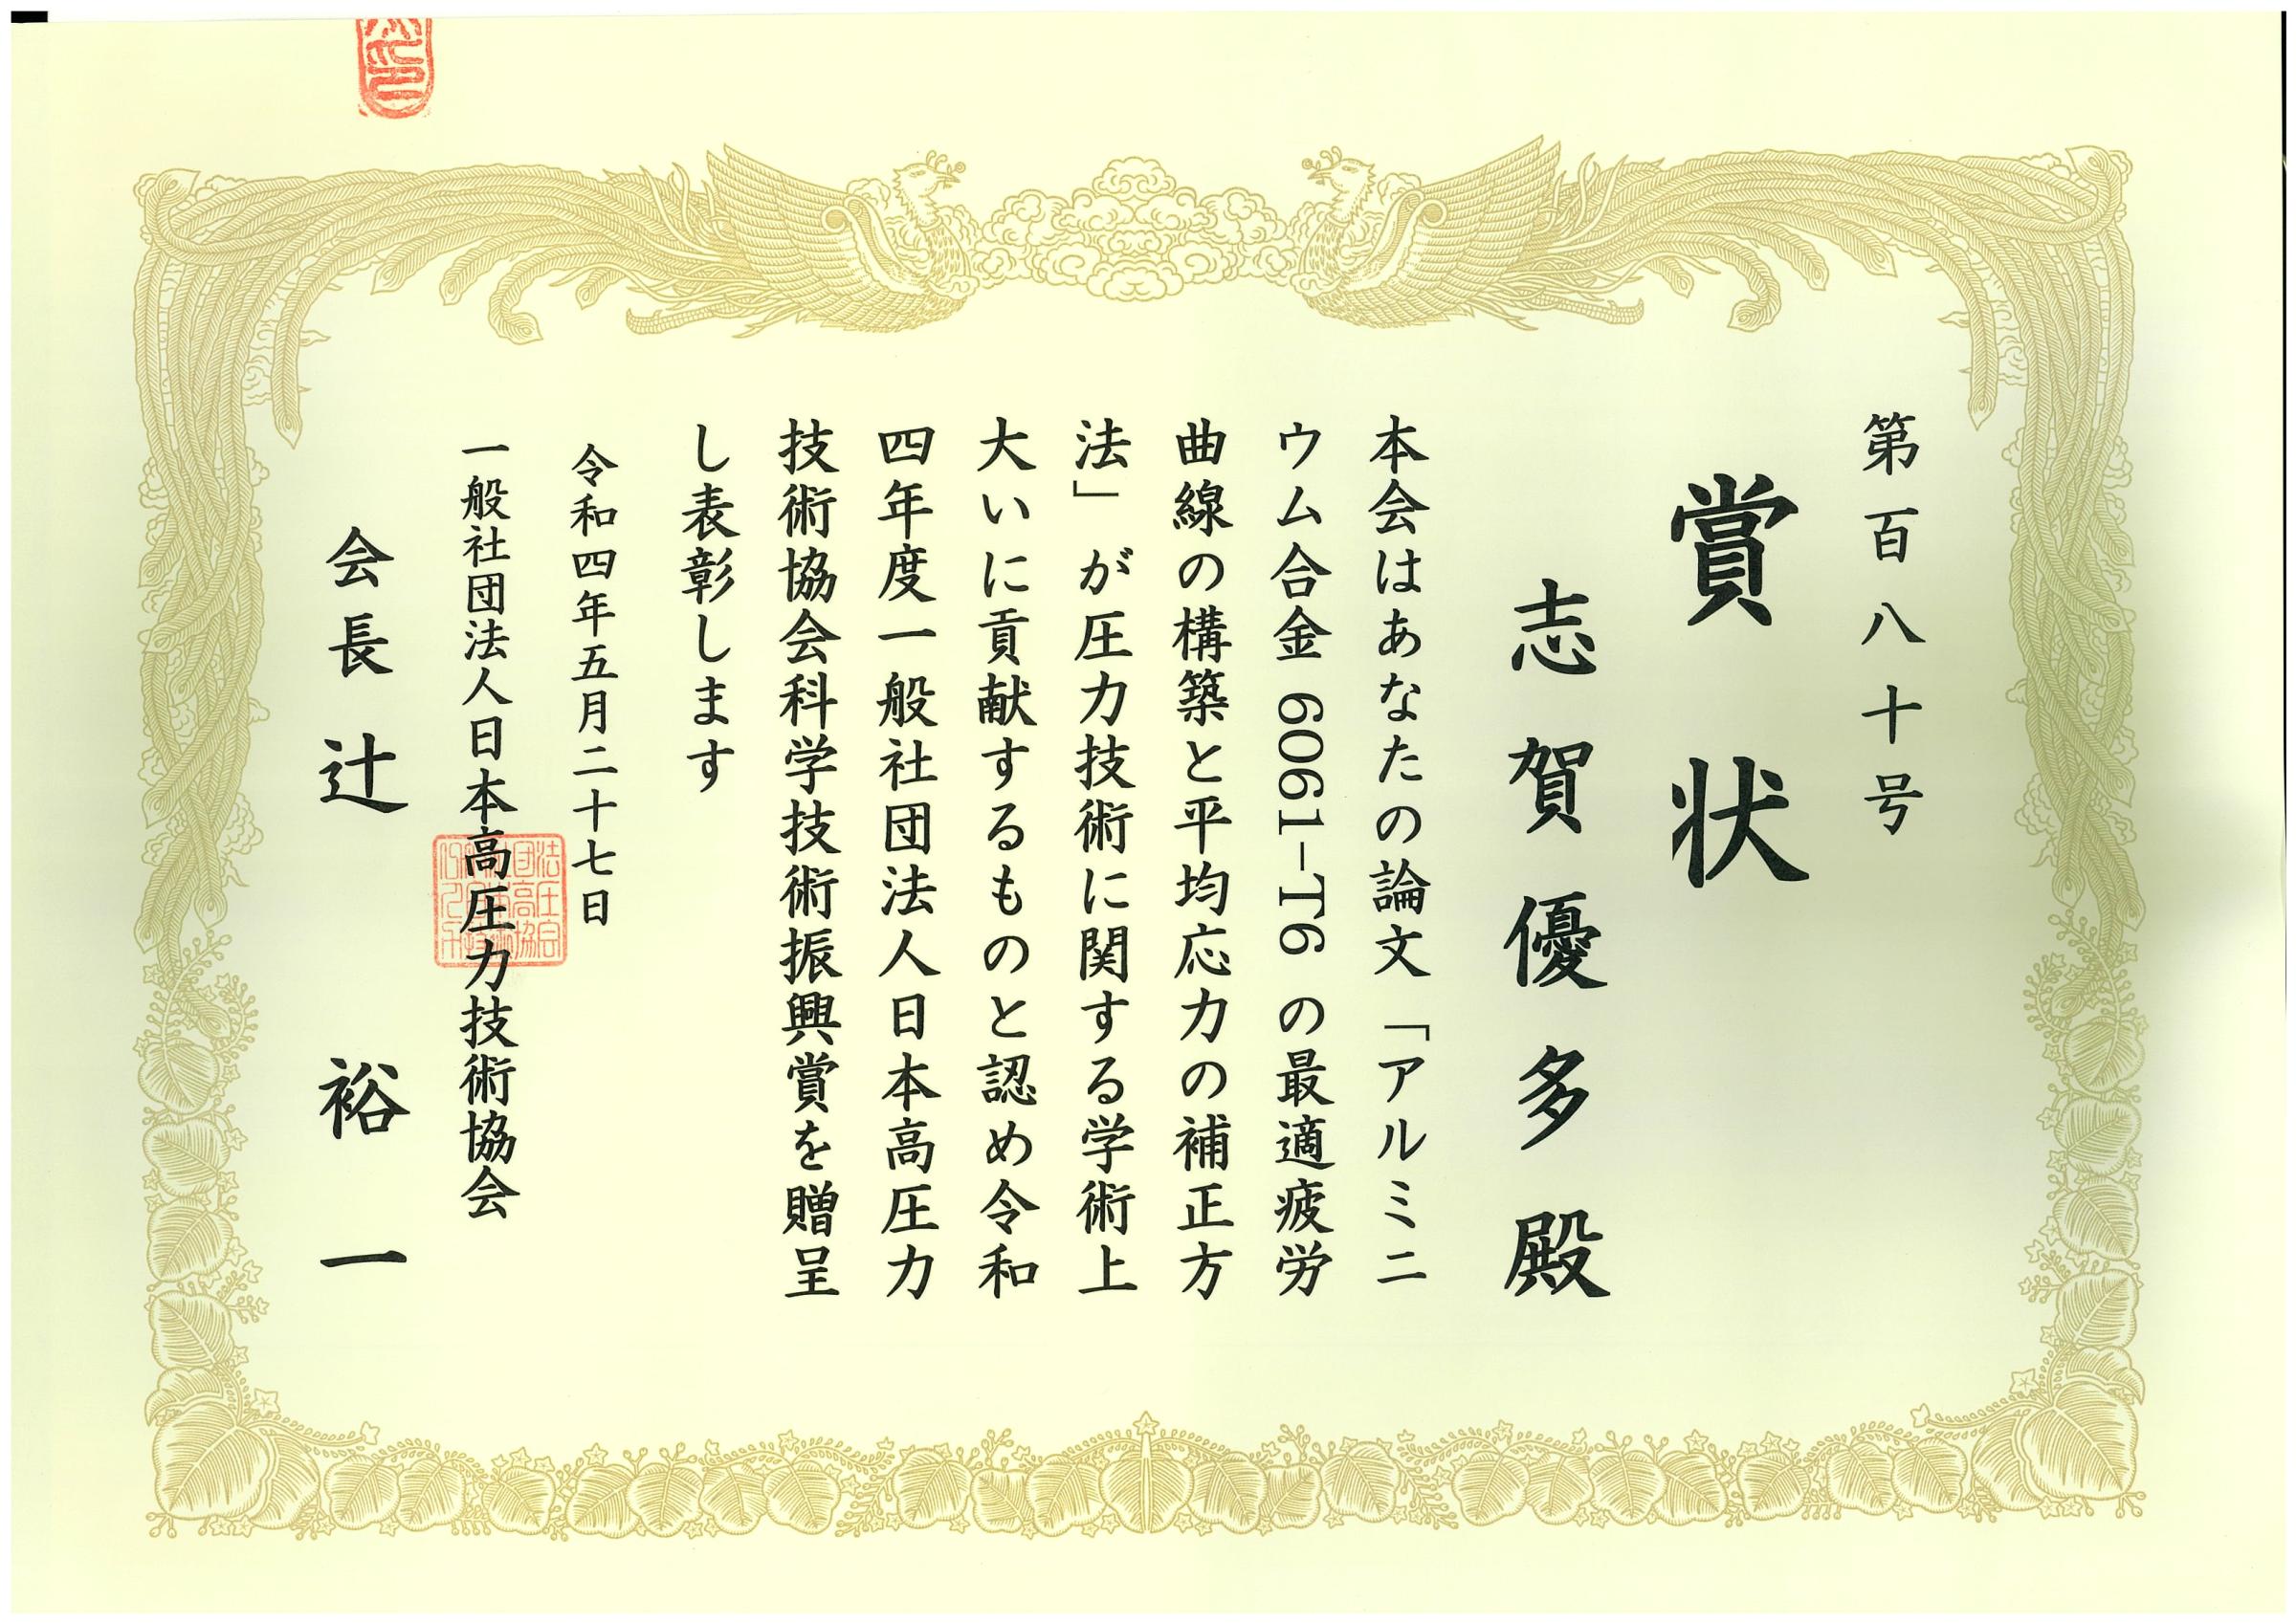 第百八十号
賞状
志賀優多殿
本会はあなたの論文「アルミニ
ウム合金 6061-T6 の最適疲労
曲線の構築と平均応力の補正方
法」が圧力技術に関する学術上
大いに貢献するものと認め令和
四年度一般社団法人日本高圧力
技術協会科学技術振興賞を贈呈
し表彰します
令和四年五月二十七日
一般社団法人日本高圧力技術協会
会長 辻 裕一